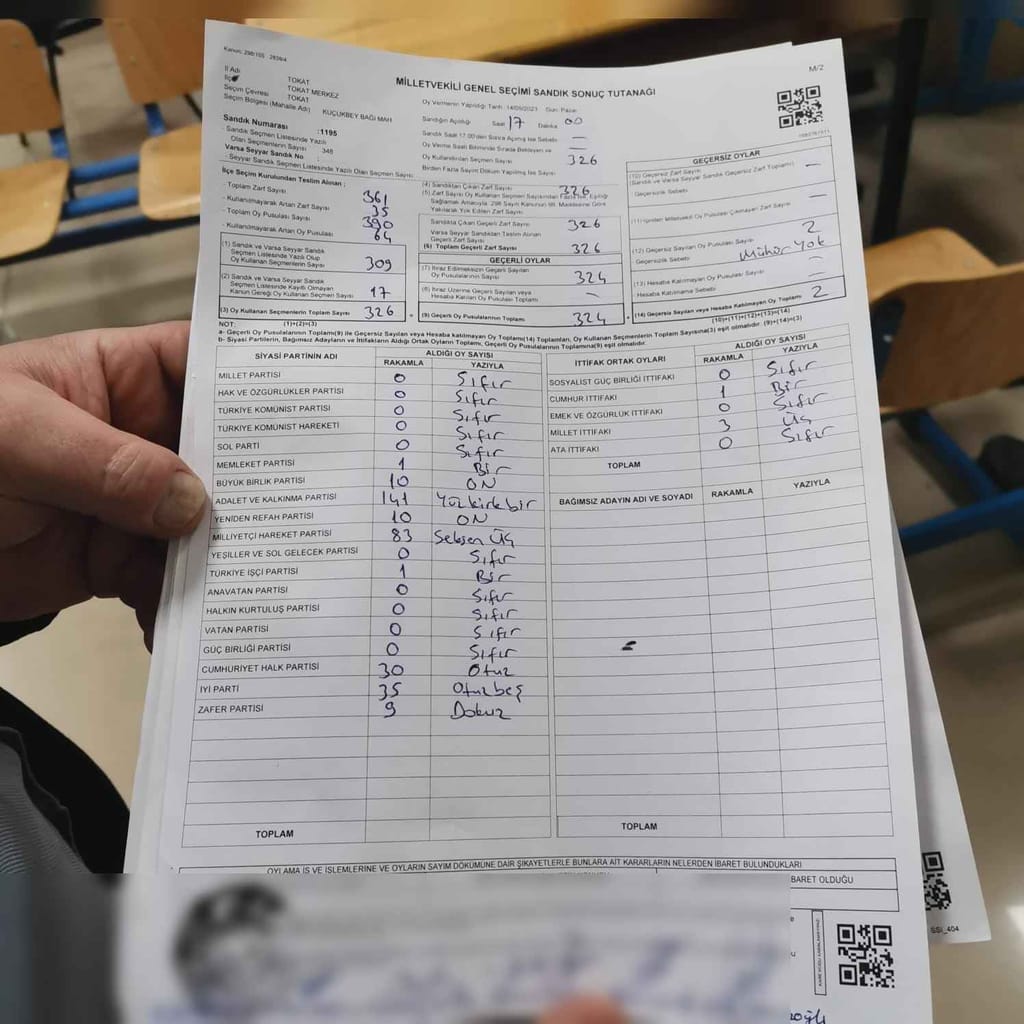 Kanun: 298/105 2839/4
M/2
MİLLETVEKİLİ GENEL SEÇİMİ SANDIK SONUÇ TUTANAĞI
İl Adı TOKAT
İlçe TOKAT MERKEZ
Seçim Çevresi TOKAT
Seçim Bölgesi (Mahalle Adı) KÜÇÜKBEY BAĞI MAH
Sandık Numarası :1195
- Sandık Seçmen Listesinde Yazılı
Olan Seçmenlerin Sayısı 348
Varsa Seyyar Sandık No :
- Seyyar Sandık Seçmen Listesinde Yazılı Olan Seçmen Sayısı
Oy Vermenin Yapıldığı Tarih :14/05/2023 Gün: Pazar
Sandığın Açıldığı Saat 17 Dakika 00
Sandık Saat 17.00'den Sonra Açılmış İse Sebebi —
Oy Verme Saati Bitiminde Sırada Bekleyen ve
Oy Kullandırılan Seçmen Sayısı 326
Birden Fazla Sayım Döküm Yapılmış İse
İlçe Seçim Kurulundan Teslim Alınan :
- Toplam Zarf Sayısı 361
- Kullanılmayarak Artan Zarf Sayısı 35
- Toplam Oy Pusulası Sayısı 390
- Kullanılmayarak Artan Oy Pusulası 64
(1) Sandık ve Varsa Seyyar Sandık
Seçmen Listesinde Yazılı Olup
Oy Kullanan Seçmenlerin Sayısı 309
(2) Sandık ve Varsa Seyyar Sandık
Seçmen Listesinde Kayıtlı Olmayan
Kanun Gereği Oy Kullanan Seçmen Sayısı 17
(3) Oy Kullanan Seçmenlerin Toplam Sayısı 326
(1)+(2)=(3)
(4) Sandıktan Çıkan Zarf Sayısı 326
(5) Zarf Sayısı Oy Kullanan Seçmen Sayısından Fazla İse, Eşitliği
Sağlamak Amacıyla, 298 Sayılı Kanunun 98. Maddesine Göre
Yakılarak Yok Edilen Zarf Sayısı
Sandıkta Çıkan Geçerli Zarf Sayısı 326
Varsa Seyyar Sandıktan Teslim Alınan
Geçerli Zarf Sayısı
(6) Toplam Geçerli Zarf Sayısı 326
GEÇERLİ OYLAR
(7) İtiraz Edilmeksizin Geçerli Sayılan
Oy Pusulalarının Sayısı 324
(8) İtiraz Üzerine Geçerli Sayılan veya
Hesaba Katılan Oy Pusulası Toplamı —
(9) Geçerli Oy Pusulalarının Toplamı 324
GEÇERSİZ OYLAR
(10) Geçersiz Zarf Sayısı
(Sandık ve Varsa Seyyar Sandık Geçersiz Zarf Toplamı) —
Geçersizlik Sebebi
(11) İçinden Milletvekili Oy Pusulası Çıkmayan Zarf Sayısı —
(12) Geçersiz Sayılan Oy Pusulası Sayısı 2
Geçersizlik Sebebi Mühür Yok
(13) Hesaba Katılmayan Oy Pusulası Sayısı —
Hesaba Katılmama Sebebi —
(14) Geçersiz Sayılan veya Hesaba Katılmayan Oy Toplamı 2
(10)+(11)+(12)+(13)=(14)
NOT:
a- Geçerli Oy Pusulalarının Toplamı(9) ile Geçersiz Sayılan veya Hesaba katılmayan Oy Toplamı(14) Toplamları, Oy Kullanan Seçmenlerin Toplam Sayısına(3) eşit olmalıdır. (9)+(14)=(3)
b- Siyasi Partilerin, Bağımsız Adayların ve İttifakların Aldığı Ortak Oyların Toplamı, Geçerli Oy Pusulalarının Toplamına(9) eşit olmalıdır.
SİYASİ PARTİNİN ADI ALDIĞI OY SAYISI
RAKAMLA YAZIYLA
MİLLET PARTİSİ 0 Sıfır
HAK VE ÖZGÜRLÜKLER PARTİSİ 0 Sıfır
TÜRKİYE KOMÜNİST PARTİSİ 0 Sıfır
TÜRKİYE KOMÜNİST HAREKETİ 0 Sıfır
SOL PARTİ 0 Sıfır
MEMLEKET PARTİSİ 1 Bir
BÜYÜK BİRLİK PARTİSİ 10 ON
ADALET VE KALKINMA PARTİSİ 141 Yüzkirkbir
YENİDEN REFAH PARTİSİ 10 ON
MİLLİYETÇİ HAREKET PARTİSİ 83 Seksen Üç
YEŞİLLER VE SOL GELECEK PARTİSİ 0 Sıfır
TÜRKİYE İŞÇİ PARTİSİ 1 Bir
ANAVATAN PARTİSİ 0 Sıfır
HALKIN KURTULUŞ PARTİSİ 0 Sıfır
VATAN PARTİSİ 0 Sıfır
GÜÇ BİRLİĞİ PARTİSİ 0 Sıfır
CUMHURİYET HALK PARTİSİ 30 Otuz
İYİ PARTİ 35 Otuzbeş
ZAFER PARTİSİ 9 Dokuz
TOPLAM
İTTİFAK ORTAK OYLARI ALDIĞI OY SAYISI
RAKAMLA YAZIYLA
SOSYALİST GÜÇ BİRLİĞİ İTTİFAKI 0 Sıfır
CUMHUR İTTİFAKI 1 Bir
EMEK VE ÖZGÜRLÜK İTTİFAKI 0 Sıfır
MİLLET İTTİFAKI 3 Üç
ATA İTTİFAKI 0 Sıfır
TOPLAM
BAĞIMSIZ ADAYIN ADI VE SOYADI RAKAMLA YAZIYLA
TOPLAM
OYLAMA İŞ VE İŞLEMLERİNE VE OYLARIN SAYIM DÖKÜMÜNE DAİR ŞİKAYETLERLE BUNLARA AİT KARARLARIN NELERDEN İBARET BULUNDUKLARI
BARET OLDUĞU
SSI_404